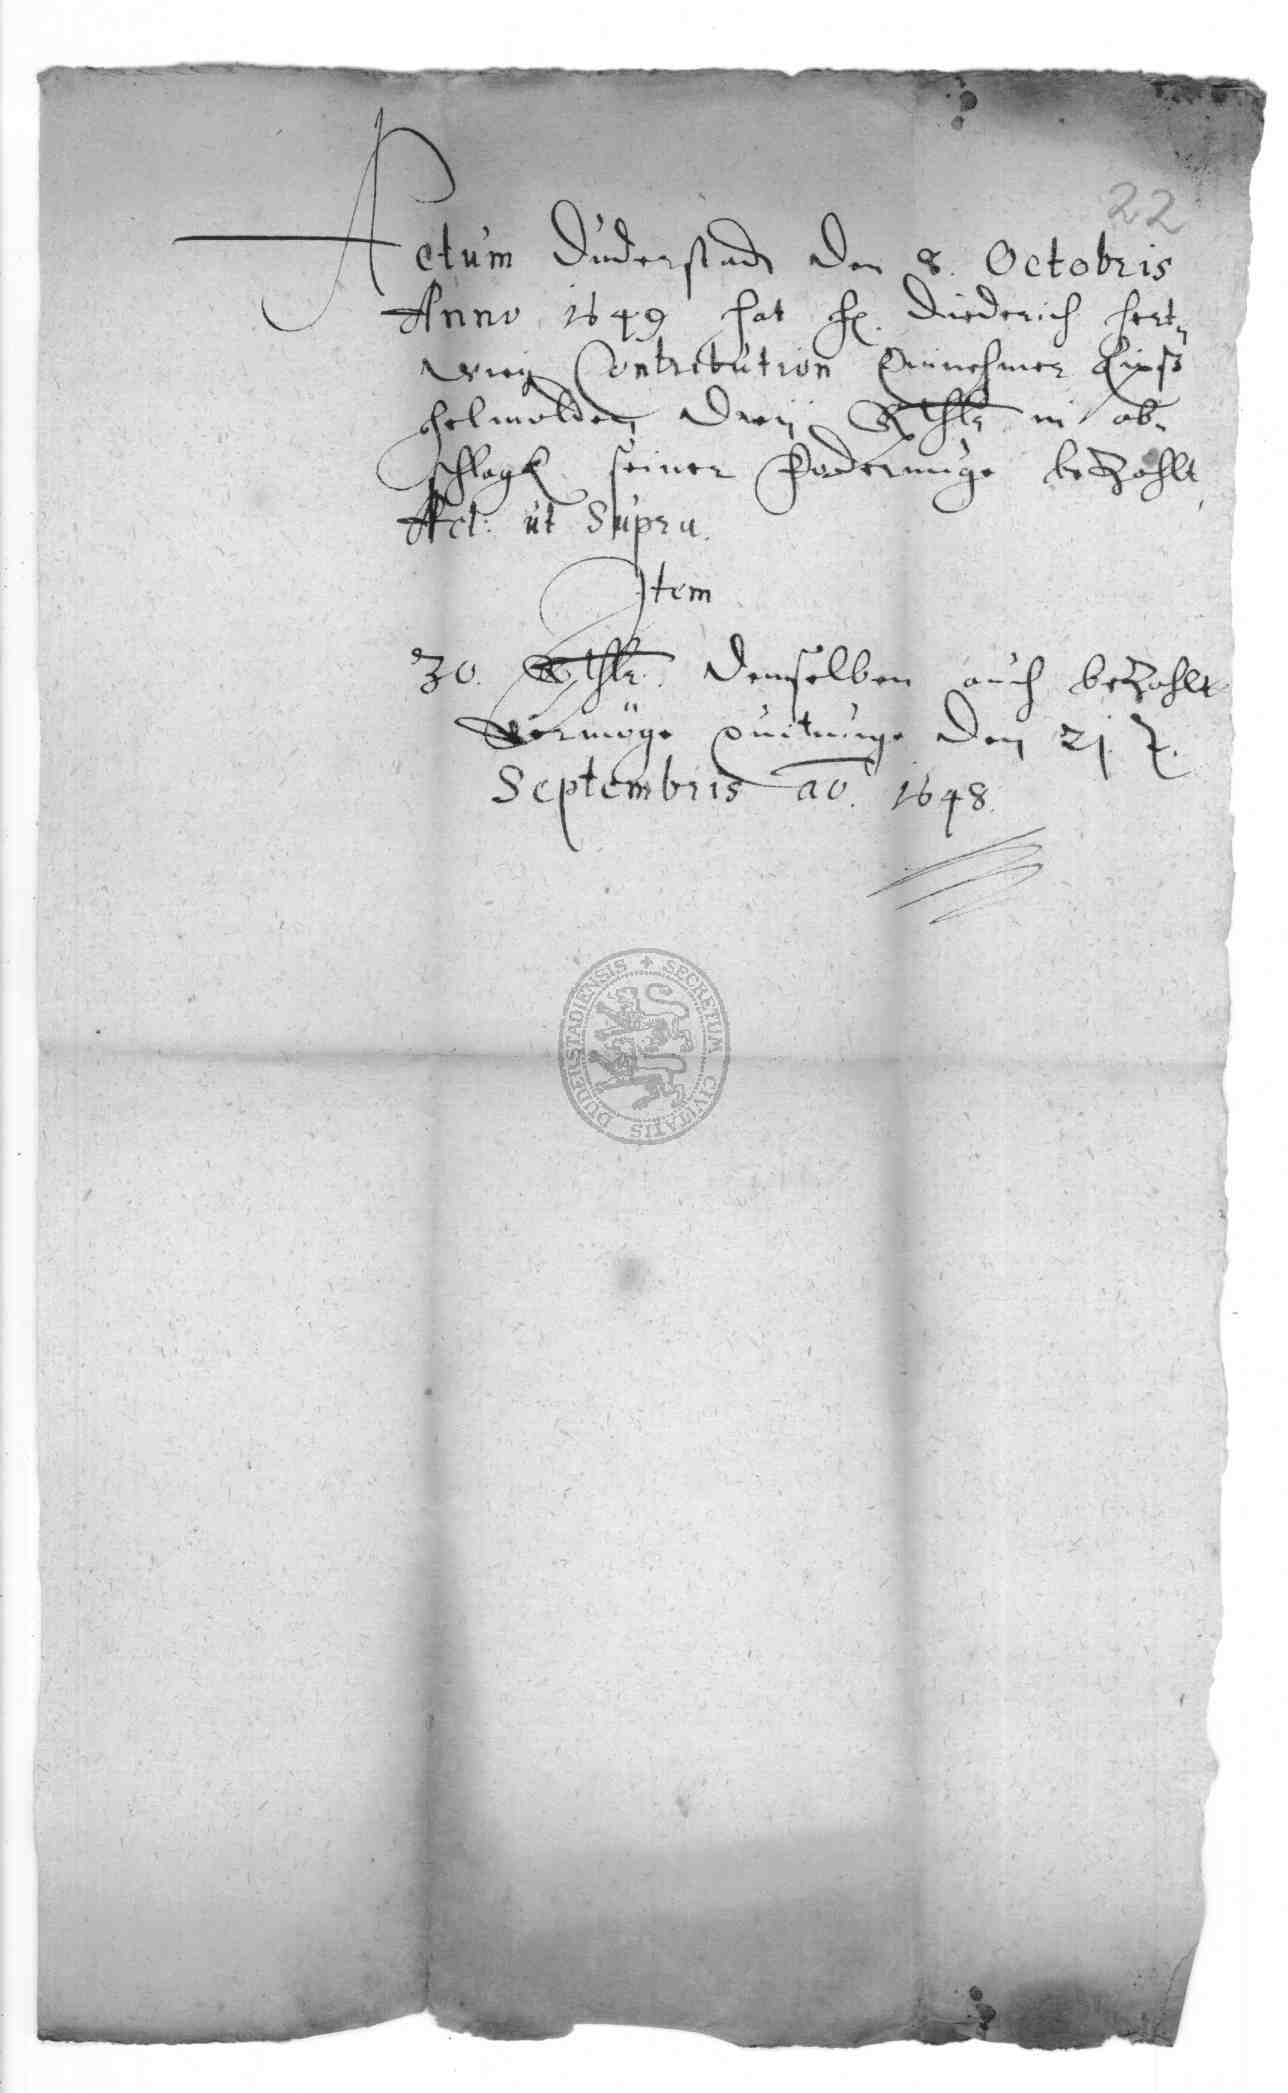 22
Actum Duderstadt den 8. Octobris
Anno 1649 hat H. Diederich Hert-
wieg Contribution Einnehmer
Helmolden dreÿ Rthlr in ab-
schlagk seiner Foderunge bezahlt
Act: ut Supra.
Item
30. Rthlr. demselben auch bezahlt
vermöge quitunge den 21. 7.
Septembris ao. 1648.
SECRETUM CIVITATIS DUDERSTADIENSIS